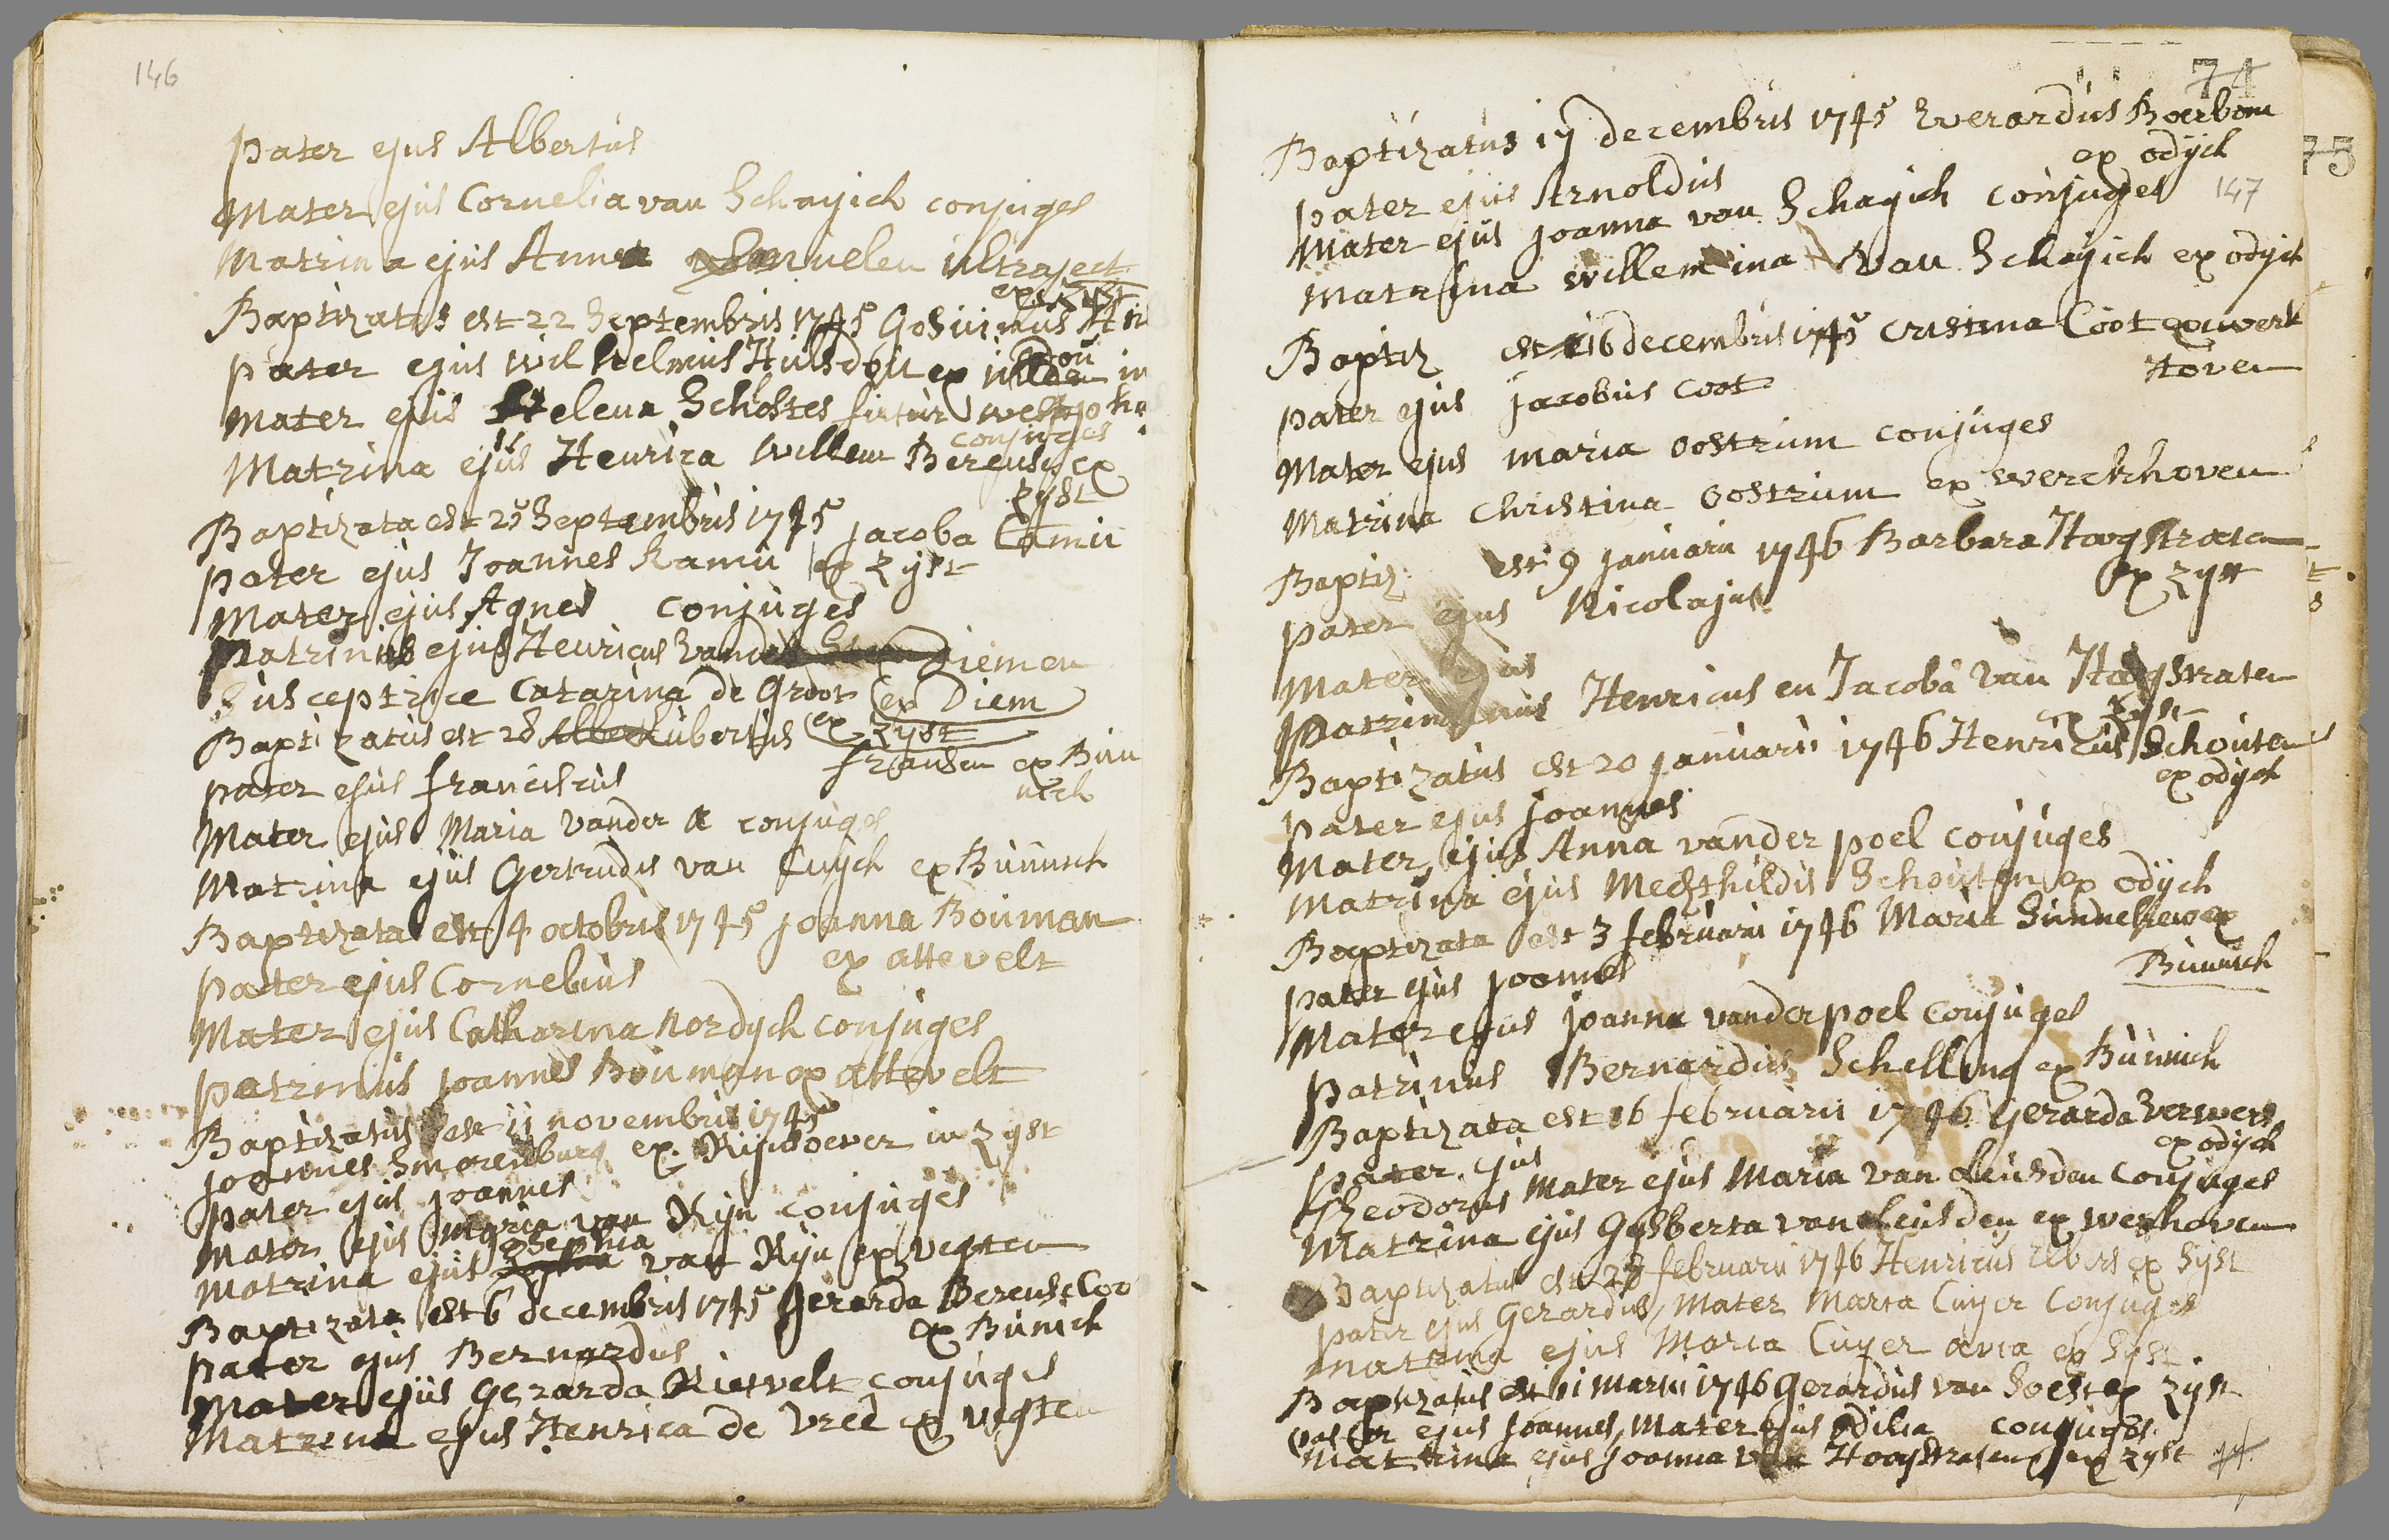 146
pater ejus Albertus
Mater ejus Cornelia van Schayick conjuges
Matrina ejus Anna ultraject
ex zyst
Baptizatus est 22 Septembris 1745 Gosuinus
pater ejus wilhelmus Hulsdou ex
Mater ejus Helena Scholtes
conjuges
Matrina ejus Henrica willem Berensen ex
zyst
Baptizata est 25 Septembris 1745 jacoba Camii
pater ejus Joannes Kamii ex zyst
Mater ejus Agnes conjuges
patrinus ejus Henricus vander Diemen
Susceptrice Catarina de Groot ex Diem
Baptizatus est 28 Albert Lubertus ex zyst
fransen ex Bun
pater ejus franciscus nick
Mater ejus Maria vander A conjuges
Matrina ejus Gertrudis van Cuych ex Bunnich
Baptizata est 4 octobris 1745 joanna Bouman
pater ejus Cornelius ex attevelt
Mater ejus Catharina Nordych conjuges
patrinus joannes Bouman ex attevelt
Baptizatus est 11 novembris 1745
joannes Smorenburg ex Rynsoever in zyst
pater ejus joannes
Mater ejus Maria van Ryn conjuges
Josephia
Matrina ejus van Ryn ex vegten
Baptizata est 6 decembris 1745 gerarda Berense Coo
ex Bunick
pater ejus Bernardus
Mater ejus gerarda Rietvelt conjuges
Matrina ejus Henrica de vree ex vegten
74
75
Baptizatus 17 decembris 1745 Everardus Boerbom
ex odijck
pater ejus Arnoldus
147
Mater ejus joanna van Schayick conjuges
Matrina willemina van Schayick ex odijck
Baptiz est 16 decembris 1745 cristina Coot ex werk
Hoven
pater ejus jacobus Coot
Mater ejus maria oostrum conjuges
Matrina christina oostrum ex werckhoven
Baptiz est 9 januarii 1746 Barbara Hogstraten
ex zyst
pater ejus Nicolajus
Mater ejus
patrinus Henricus en Jacoba van Hogstraten
ex zyst
Baptizatus est 20 januarii 1746 Henricus Schouten
ex odijck
pater ejus joannes
Mater ejus Anna vander poel conjuges
Matrina ejus Mechthildis Schouten ex odijck
Baptizata est 3 februarii 1746 Maria ex
Bunnich
pater ejus joannes
Mater ejus joanna vanderpoel conjuges
patrinus Bernardus Schelling ex Bunnich
Baptizata est 16 februarii 1746 gerarda verwers
ex odijck
pater ejus
Theodorus Mater ejus Maria van Leusden conjuges
Matrina ejus Gysberta van Leusden ex werhoven
Baptizatus est 28 februarii 1746 Henricus Elbers ex Syst
pater ejus Gerardus, Mater Maria Cuyer conjuges
matrina ejus Maria Cuyer avia ex Syst
Baptizatus est 11 martii 1746 Gerardus van Soest ex zyst
pater ejus joannes, Mater ejus odilia conjuges
Matrina ejus joanna van Hoogstraten ex zyst